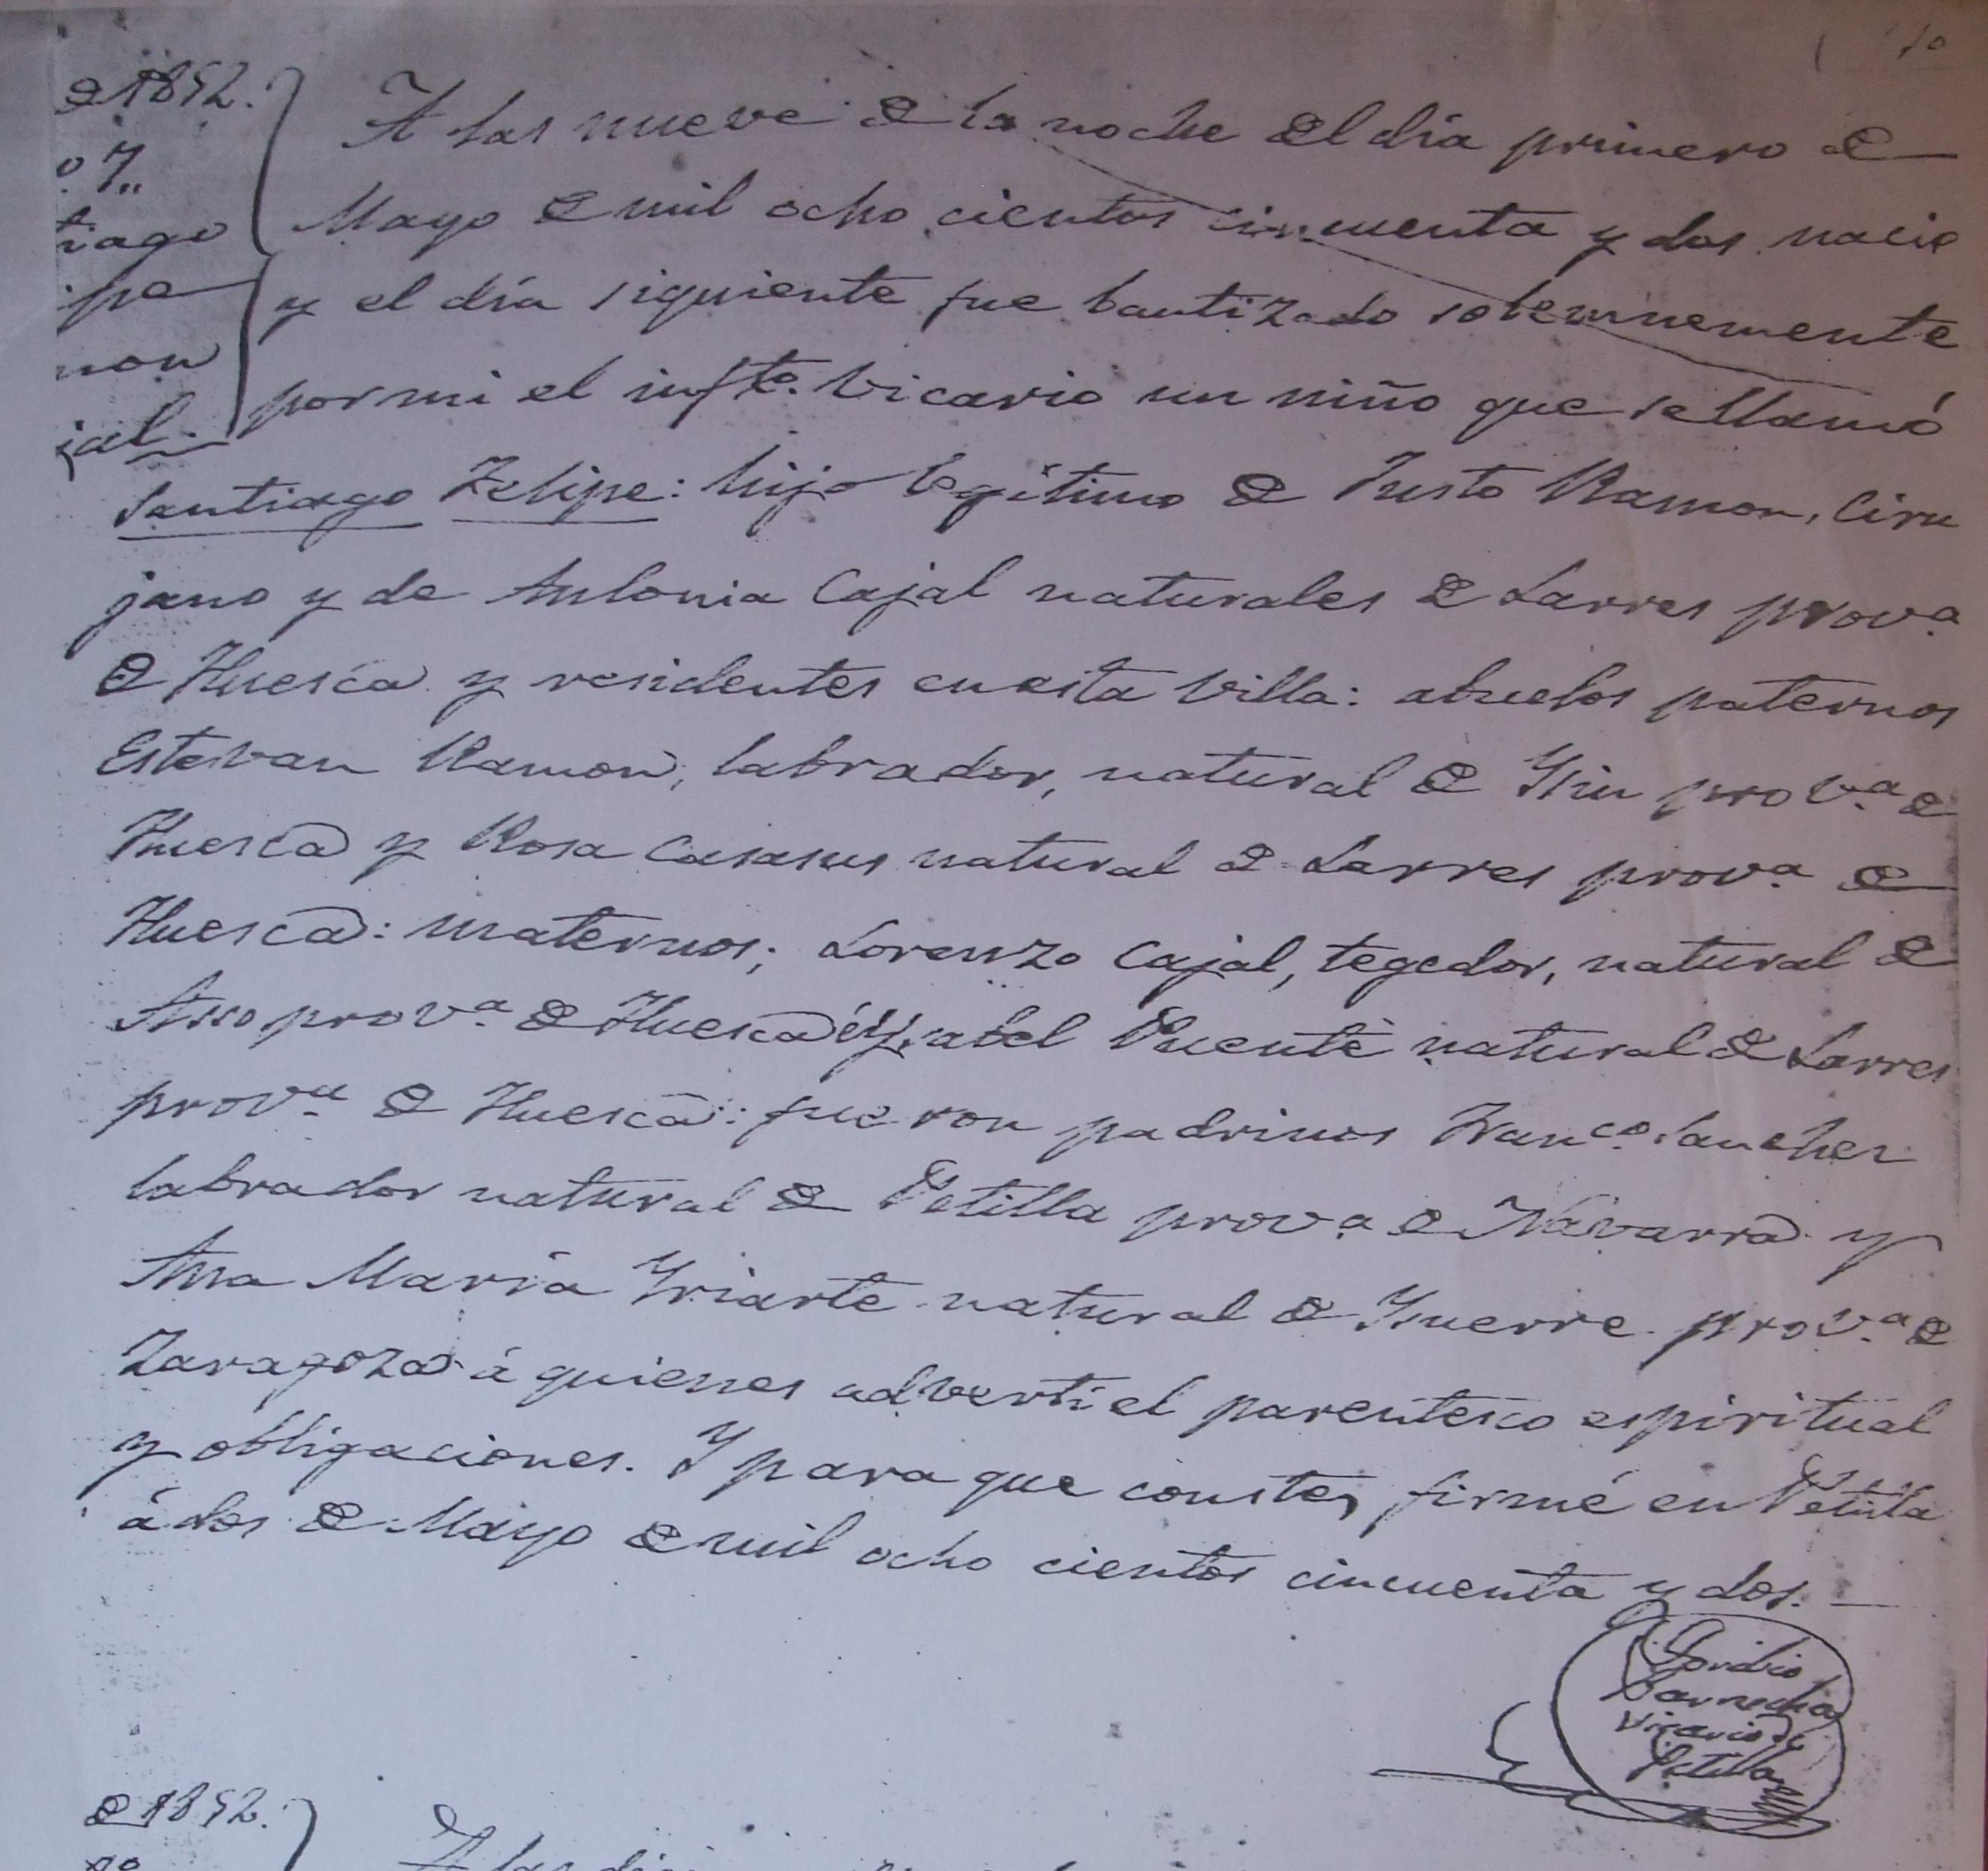 de 1852.
o 7,,
tiago
ipe
mon
jal.
A las nueve de la noche del día primero de
Mayo de mil ocho cientos cincuenta y dos nacio
y el día siguiente fue bautizado solemnemente
por mi el infto. Vicario un niño que se llamó
Santiago Felipe: hijo legitimo de Justo Ramon, Ciru
jano y de Antonia Cajal naturales de Larres prova.
de Huesca y residentes en esta Villa: abuelos paternos
Estevan Ramon, labrador, natural de Ysin prova. de
Huesca y Rosa Casasus natural de Larres prova. de
Huesca: maternos; Lorenzo Cajal, tegedor, natural de
Asso prova. de Huesca é Ysabel Puente natural de Larres
prova. de Huesca: fueron padrinos Franco. Sanchez
labrador natural de Petilla prova. de Navarra y
Ana María Yriarte natural de Ysuerre prova. de
Zaragoza á quienes adverti el parentesco espiritual
y obligaciones. Y para que conste, firmé en Petilla
á dos de Mayo de mil ocho cientos cincuenta y dos.
Vicario de
Petilla
de 1852.
A las